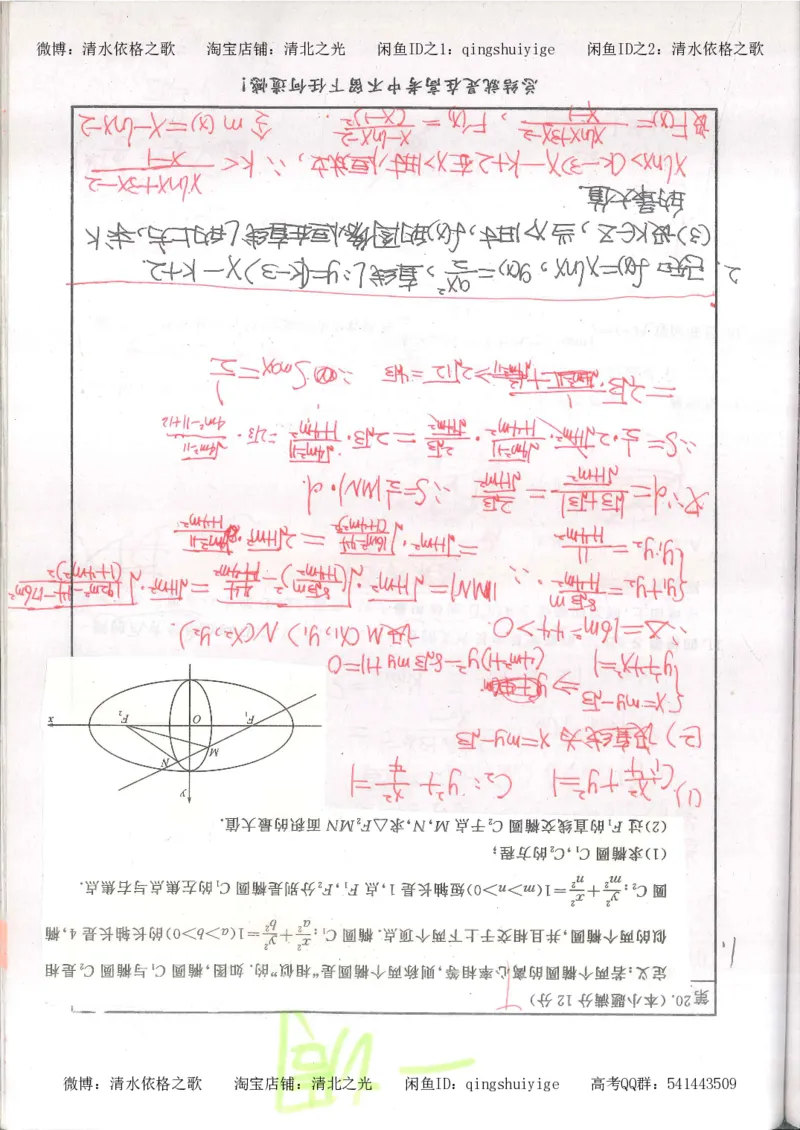 微博：清水依格之歌 淘宝店铺：清北之光 闲鱼ID之1：qingshuiyige 闲鱼ID之2：清水依格之歌
第20.(本小题满分12分)
1. 定义:若两个椭圆的离心率相等,则称两个椭圆是“相似”的. 如图,椭圆C₁与椭圆C₂是相
似的两个椭圆,并且相交于上下两个顶点. 椭圆C₁: x²/a²+y²/b²=1(a>b>0)的长轴长是4,椭
圆C₂: y²/m²+x²/n²=1(m>n>0)短轴长是1,点F₁,F₂分别是椭圆C₁的左焦点与右焦点.
(1)求椭圆C₁,C₂的方程;
(2)过F₁的直线交椭圆C₂于点M,N,求△F₂MN面积的最大值.
(1) C₁: x²/4+y²=1 C₂: y²+x²/(1/4)=1
y
N
M
F₁ O F₂ x
(2) 设直线为x=my-√3
{x=my-√3
y²+4x²=1 ⇒ (4m²+1)y²-8√3my+11=0
∴△=16m²-44>0 设M(x₁,y₁) N(x₂,y₂).
{y₁+y₂=8√3m/(1+4m²)
y₁y₂=11/(1+4m²)
∴|MN|=√1+m²·√(8√3m/(1+4m²))²-44/(1+4m²)=√1+m²·√(192m²-44-176m²)/(1+4m²)²
=√1+m²·√(16m²-44)/(1+4m²)²=2√1+m²·√4m²-11/(1+4m²)
又∵d=|√3+√3|/√1+m²=2√3/√1+m² ∴S=½|MN|·d
∴S=½·2√1+m²·√4m²-11/(1+4m²)·2√3/√1+m²=2√3·√4m²-11/(1+4m²)=2√3·√4m²-11/(4m²-11+12)
≥2√12=4√3 ∴Smax=½
2. 已知f(x)=xlnx, g(x)=ax²/2, 直线l:y=(k-3)x-k+2.
(3)设k∈Z,当x>1时,f(x)的图像恒在直线l的上方,求k
的最大值.
xlnx>(k-3)x-k+2在x>1时,恒成立, ∴k<(xlnx+3x-2)/(x-1)
设F(x)=(xlnx+3x-2)/(x-1), F'(x)=(x-lnx-2)/(x-1)². 令m(x)=x-lnx-2
总结就是在高考中不留下任何遗憾!
微博：清水依格之歌 淘宝店铺：清北之光 闲鱼ID：qingshuiyige 高考QQ群：541443509